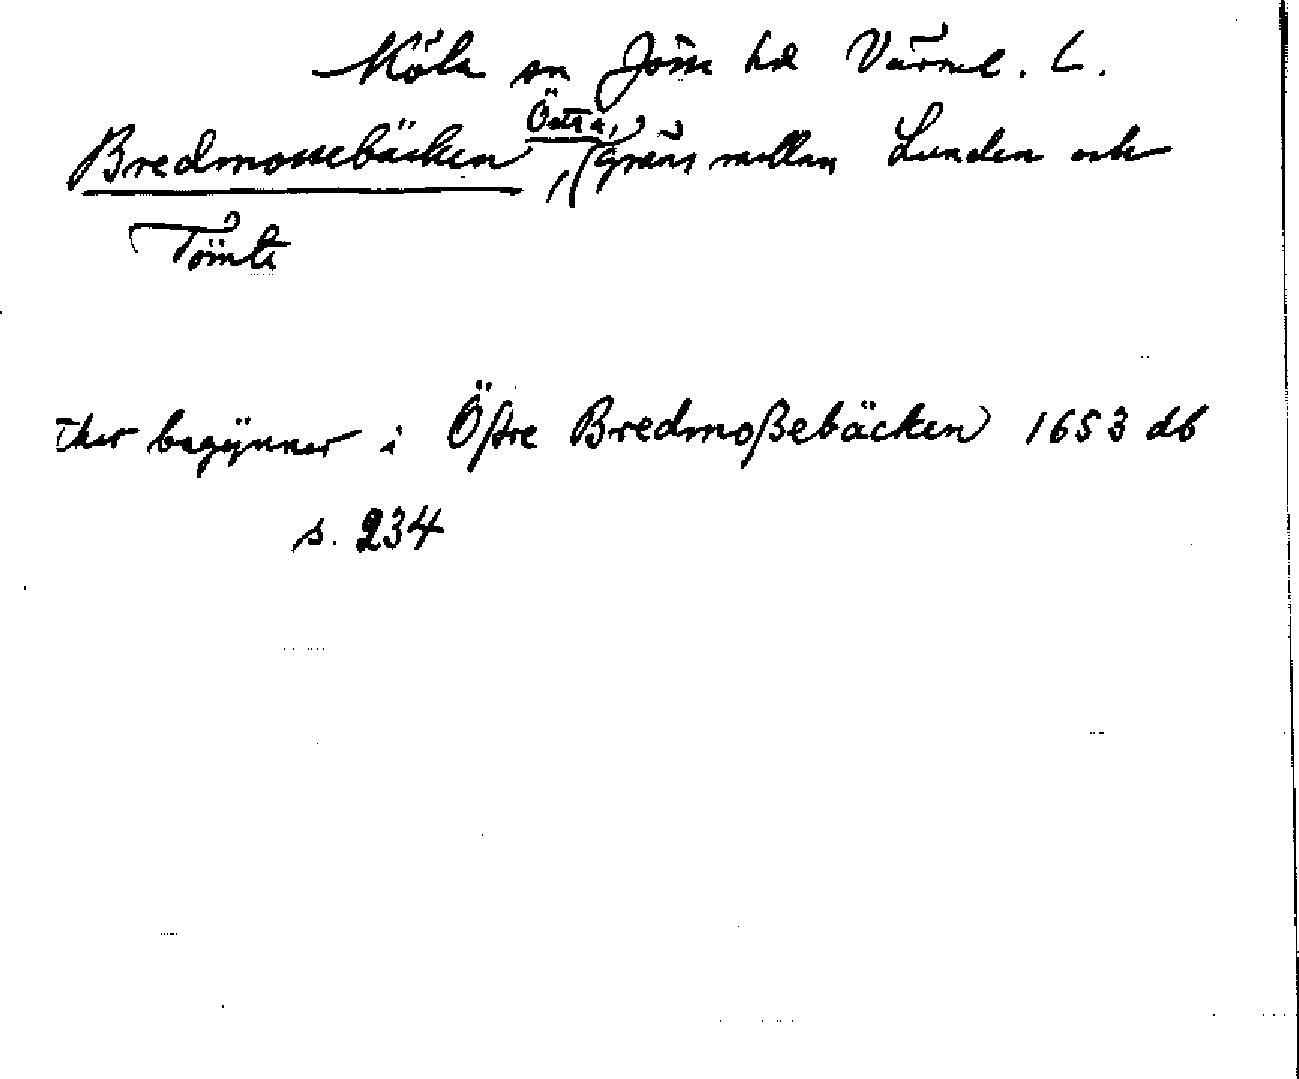 Köla sn Jösse hd Värml. L.
Bredmossebäcken, Östra, (gräns mellan Lunden och
Tömte
ther begÿnner i Öffre Bredmoßebäcken 1653 db
s. 234